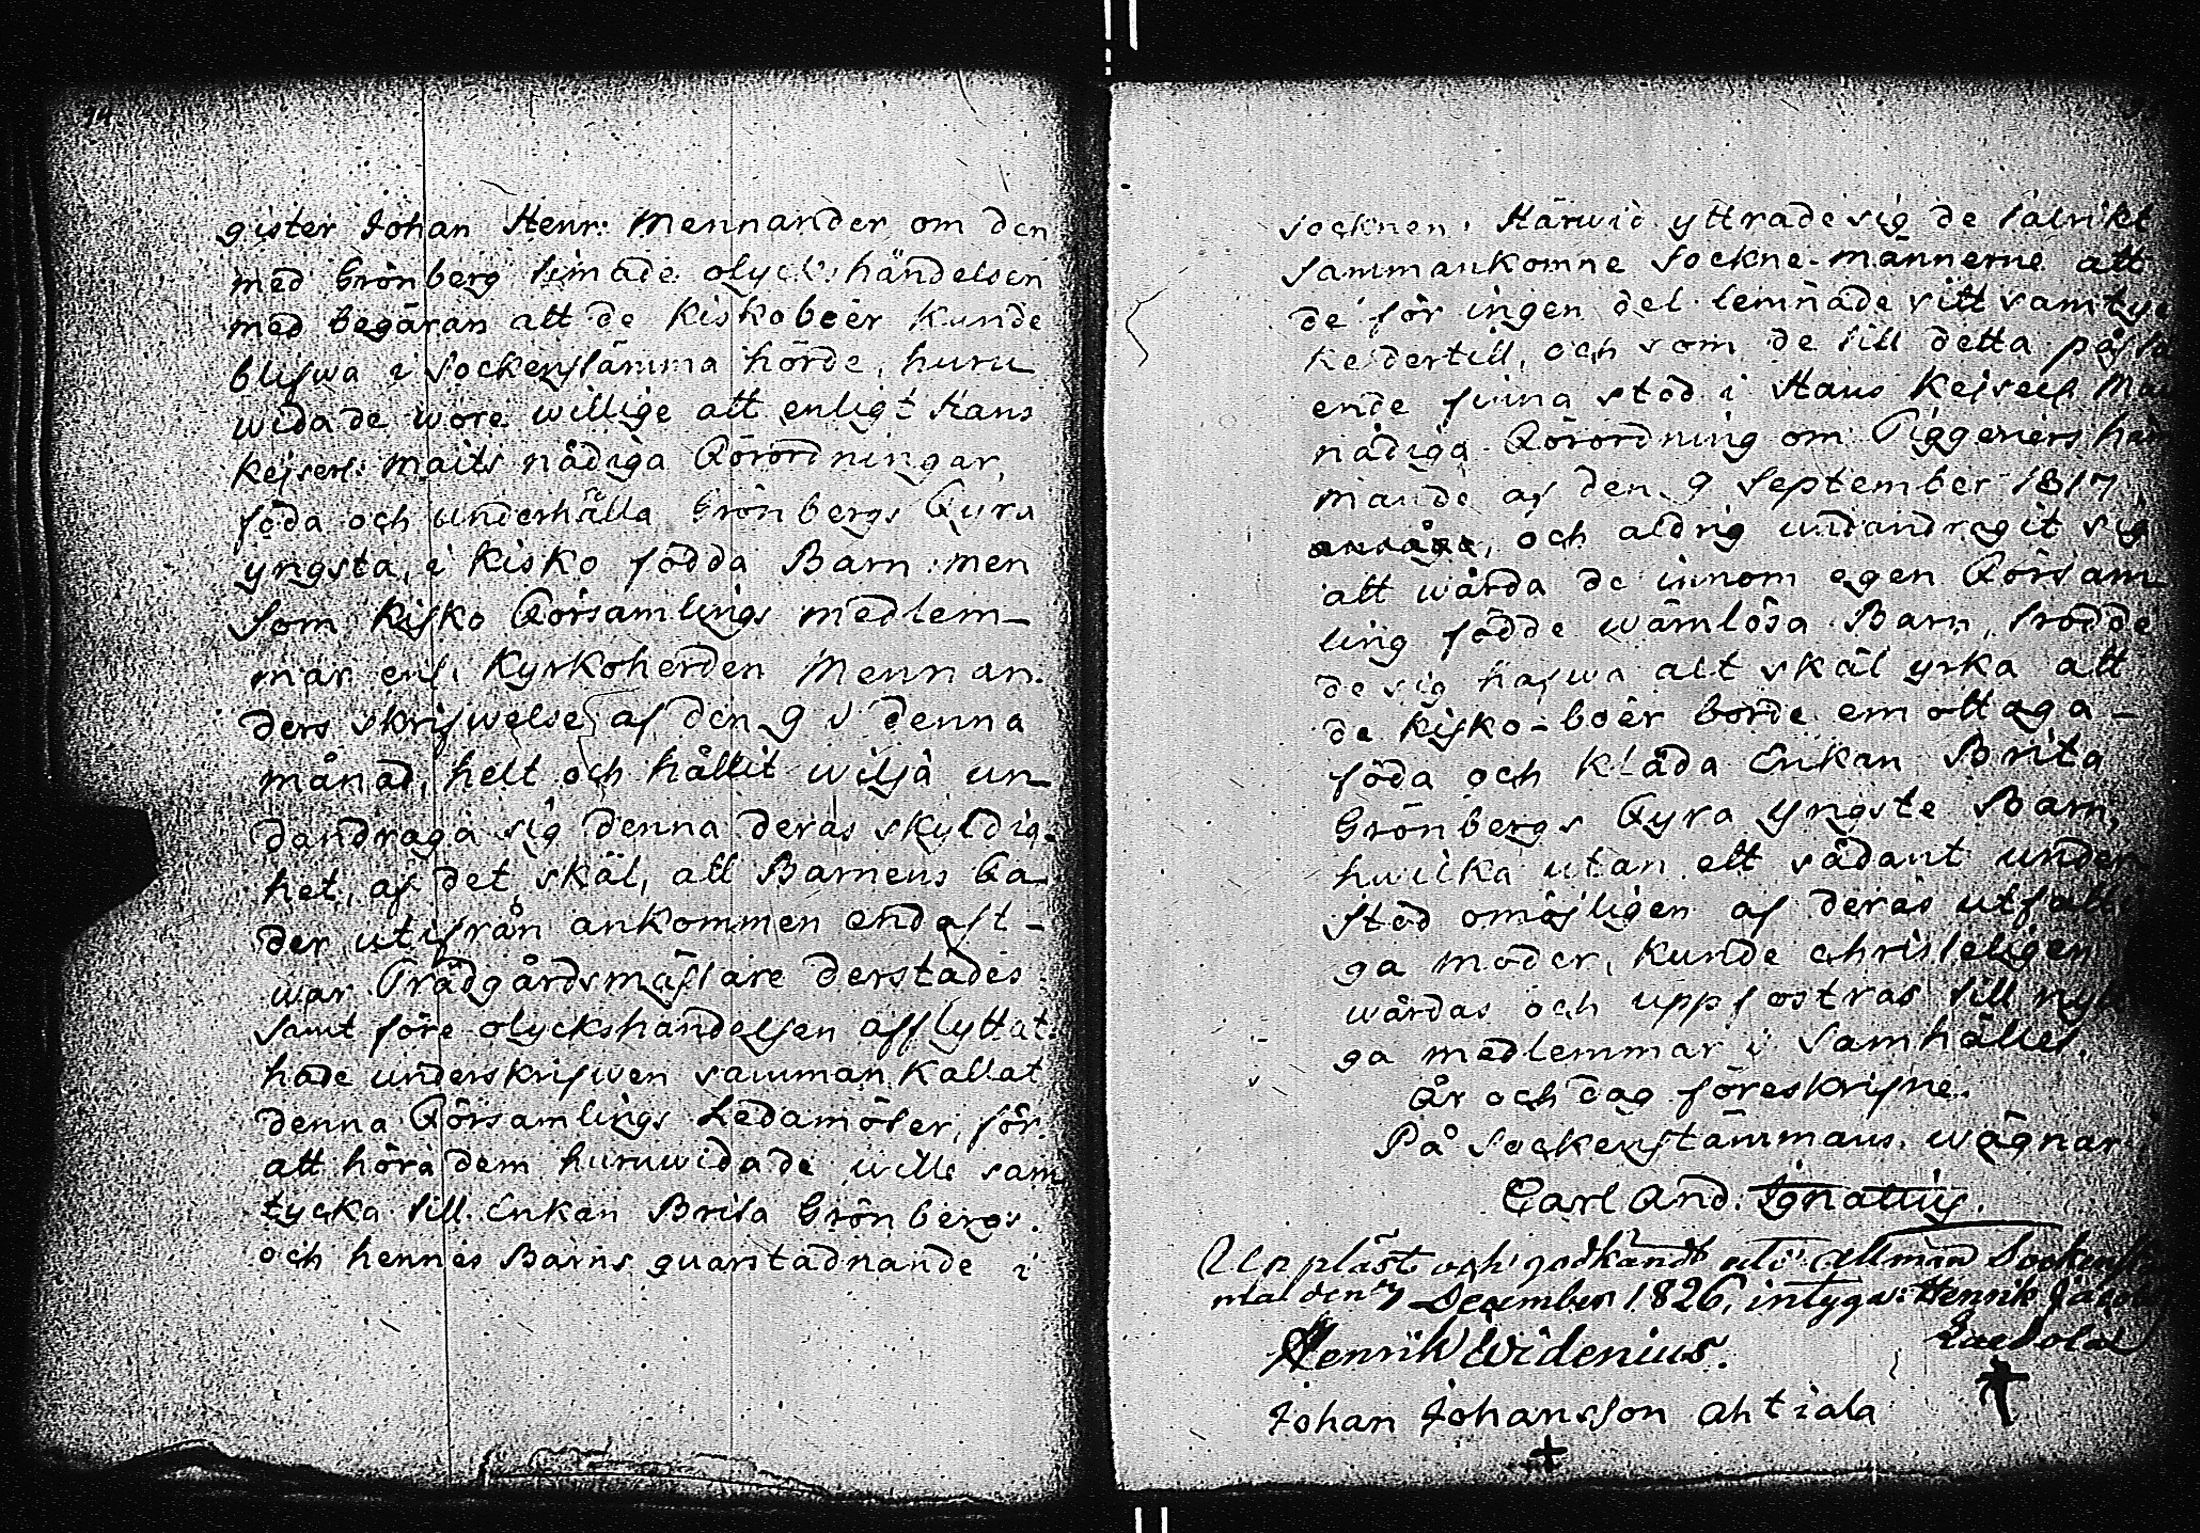 gister Johan Henr: Mennander om den
med Grönberg timade olycks händelsen
med begäran att de Kiskoboer kunde
blifwa i Sockenstämma hörde, huru
wida de wore willige att enligt Hans
Kejserl: Maits nådiga Förordningar,
föda och underhålla Grönbergs Fyra
yngsta, i Kisko födda Barn: men
Som Kisko Församlings medlem-
mar enl. Kyrkoherden Mennan-
ders skrifwelse af den 9 i denna
månad, helt och hållit wilja un-
dandraga sig denna deras skyldig-
het, af det skäl, att Barnens Fa-
der utifrån ankommen endast-
war Trädgårdsmästare derstädes
samt före olyckshändelsen afflyttat.
hade underskrifwen samman kallat
denna Församlings Ledamöter, för
att höra dem huruwida de wille sam
tycka till Enkan Brita Grönbergs.
och hennes Barns quarstadnande i
Socknen. Härwid yttrade sig de talrikt
Sammankomne Sockne-männerne att
de för ingen del lemnade sitt samtyc
ke dertill, och som de till detta påstå
ende finna stöd i Hans Kejserl Mai
nådiga Förordning om Tiggeriers häm
mande af den 9 September 1817,
och aldrig undandragit sig
att wårda de innom egen Försam
ling födde wärnlösa Barn, trodde
de sig hafwa alt skäl yrka att
de Kisko-boer borde emottaga-
föda och kläda Enkan Brita
Grönbergs Fyra yngste Barn,
hwilka utan ett sådant under
stöd omöjligen af deras utfatti
ga moder, kunde christeligen
wårdas och uppfostras till nyt
ga medlemmar i Samhället.
År och dag föreskrifne.
På Sockenstämmans wägnar
Carl And. Ignatius.
Upplåst och godkändt uti allmän Sockenstä
ma den 7 December 1826, intyga: Henrik
Henrik Widenius.
Johan Johansson Ahtiala